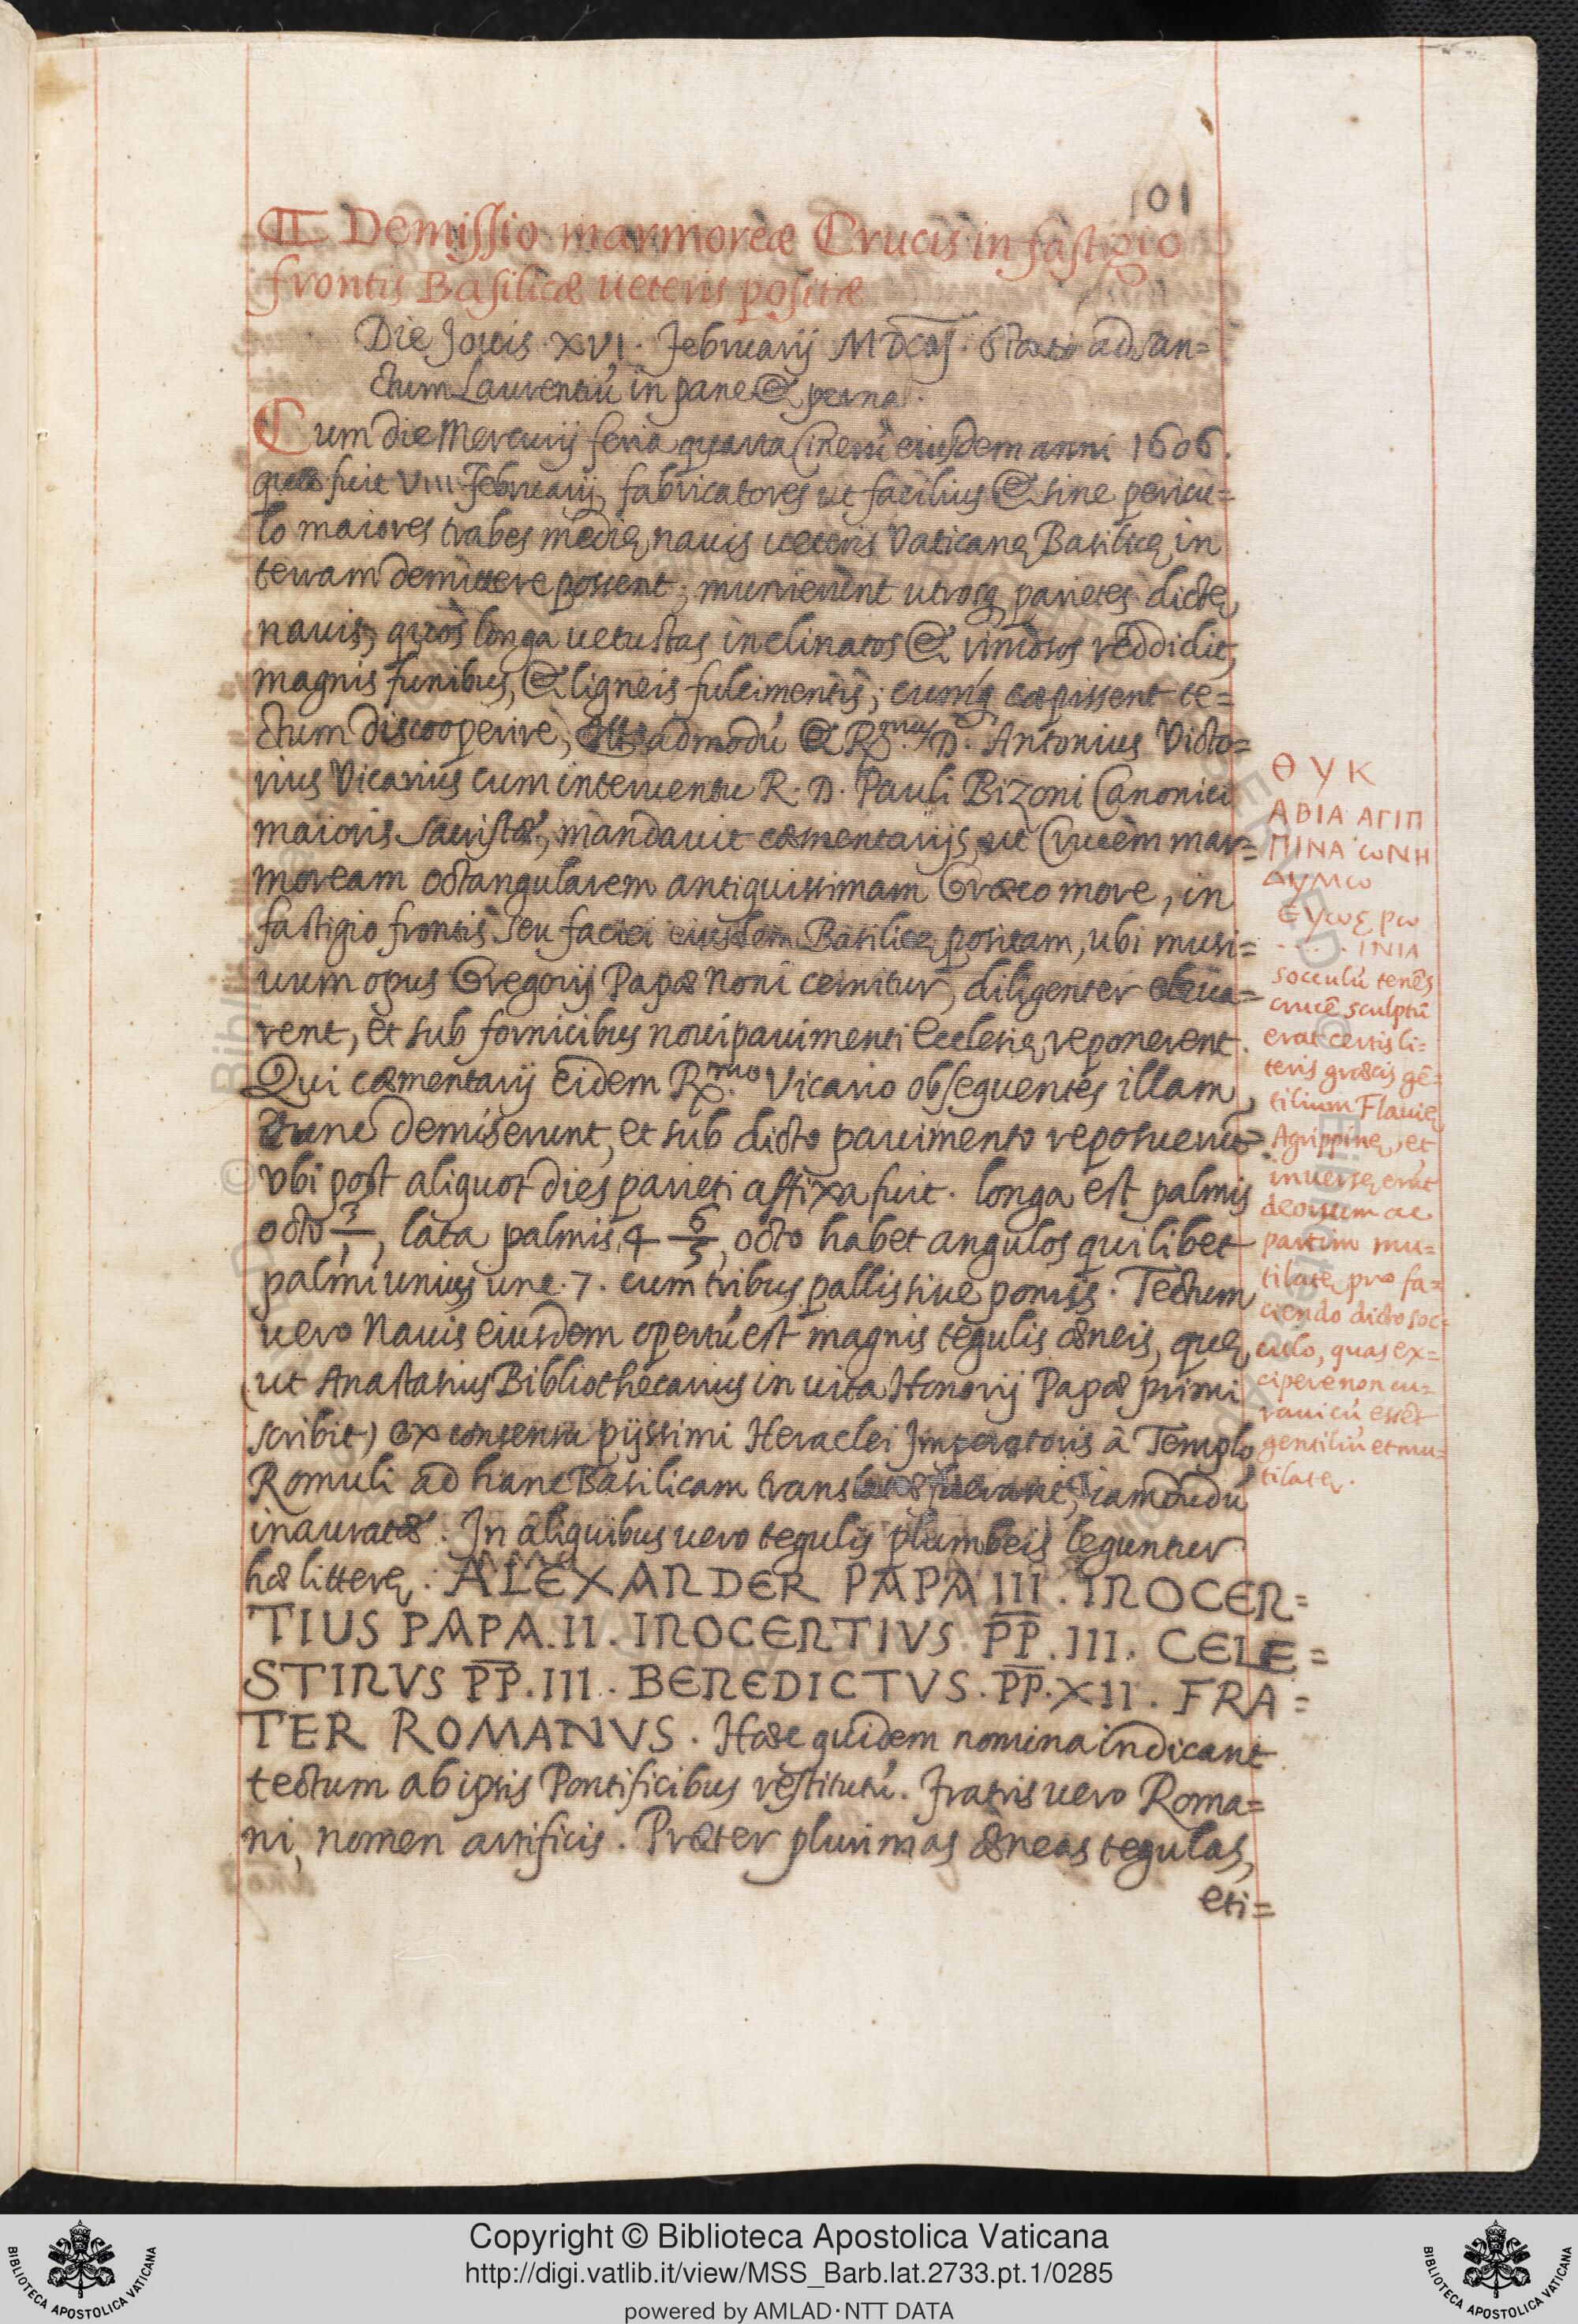 101
Demissio marmoreæ Crucis in fastigio
frontis Basilicæ ueteris positæ
Die Jouis XVI. Februarij . Statio ad San=
ctum Laurentiũ in pane & perna.
Cum die Mercurij feria quarta Cinerũ eiusdem anni 1606.
quæ fuit VIII Februarij, fabricatores ut facilius & sine pericu=
lo maiores trabes medię nauis ueteris Vaticanę Basilicę in
terram demittere possent; munierunt utrosq parietes dictę
nauis, quos longa uetustas inclinatos & rimosos reddidit,
magnis funibus, & ligneis fulcimentis; cumq cœpissent te=
ctum discooperire, admodũ & R.mus D. Antonius Victo=
rius Vicarius cum interuentu R. D. Pauli Bizoni Canonici
maioris Sacristæ, mandauit cæmentarijs, ut Crucem mar=
moream octangularem antiquissimam Græco more, in
fastigio frontis seu faciei eiusdem Basilicę positam, ubi musi=
uum opus Gregorij Papæ Noni cernitur, diligenter eleua=
rent, et sub fornicibus noui pauimenti Ecclesię reponerent.
Qui cæmentarij eidem R.mo Vicario obsequentes illam
tunc demiserunt, et sub dicto pauimento reposuerũt.
Vbi post aliquot dies parieti affixa fuit. longa est palmis
octo 3/1, lata palmis 4 6/5, octo habet angulos quilibet
palmi unius unc. 7. cum tribus pallis siue pomis. Tectum
uero Nauis eiusdem opertũ est magnis tegulis æneis, quę
(ut Anastasius Bibliothecarius in uita Honorij Papæ primi
scribit) ex consensu pijssimi Heraclei Imperatoris à Templo
Romuli ad hanc Basilicam translatæ fuerunt, iamdudũ
inauratæ. In aliquibus uero tegulis plumbeis leguntur
hæ litterę. ALEXANDER PAPA III. INOCEN=
TIUS PAPA. II. INOCENTIVS PP. III. CELE=
STINVS PP. III. BENEDICTVS. PP. XII. FRA=
TER ROMANVS. Hæc quidem nomina indicant
tectum ab ipsis Pontificibus restitutũ. Fratris uero Roma=
ni, nomen artificis. Præter plurimas æneas tegulas,
eti=
Θ Υ Κ
ΑΒΙΑ ΑΓΙΠ
ΠΙΝΑ ωΝΗ
ΔΥΜω
. . . . ΙΝΙΑ
socculũ tenẽs
crucẽ sculptũ
erat certis li=
teris græcis gẽ=
tilium Flauię
Agrippinę, et
inuersę erãt
deorsum ac
partim mu=
tilatę pro fa=
ciendo dicto soc=
culo, quas ex=
cipere non cu=
raui cũ essẽt
gentiliũ et mu=
tilatę.
Copyright © Biblioteca Apostolica Vaticana
http://digi.vatlib.it/view/MSS_Barb.lat.2733.pt.1/0285
powered by AMLAD·NTT DATA
BIBLIOTECA APOSTOLICA VATICANA
BIBLIOTECA APOSTOLICA VATICANA